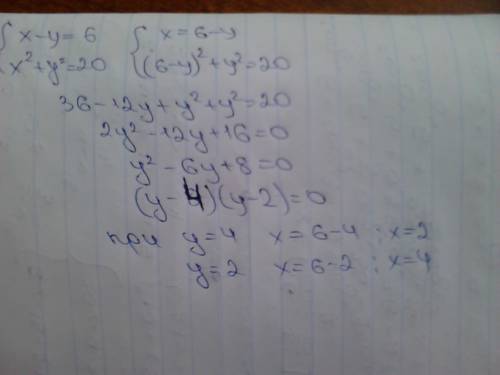 { x-y=6 { x=6-y
x²+y²=20 (6-y)²+y²=20
36-12y+y²+y²=20
2y²-12y+16=0
y²-6y+8=0
(y-4)(y-2)=0
при y=4 x=6-4 : x=2
y=2 x=6-2 : x=4